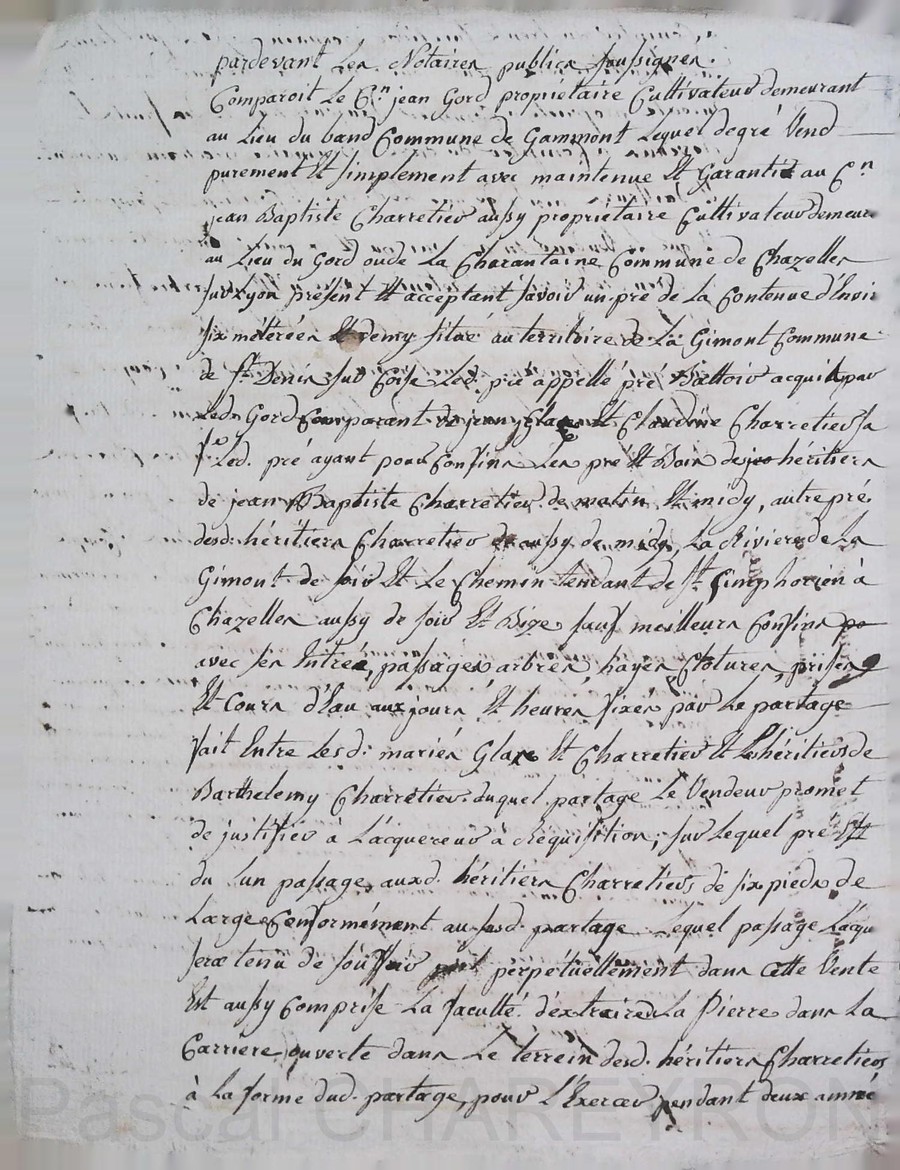 pardevant Les Notaires publics soussignés.
Comparoit Le C.n jean Gord propriétaire Cultivateur demeurant
au Lieu du band Commune de Gammont Lequel degré Vend
purement Et simplement avec maintenue Et Garantie au C.n
jean Baptiste Charretier aussy propriétaire Cultivateur demeur
au Lieu du Gord oude La Charantaine Commune de Chazelles
sur Lyon présent Et acceptant savoir un pré de La Contenue d'Envir
six méterées Et demy situé au territoire de La Gimont Commune
de St. Denis sur Coise Led. pré appellé pré Battoir acquit par
Led. Gord Comparant de jean Glas Et Claudine Charretier sa
Led. pré ayant pour Confins Les pré Et Bois des héritiers
de jean Baptiste Charretier de matin Et midy, autre pré
desd. héritiers Charretier aussy de midy, La Riviere de La
Gimont de soir Et Le Chemin tendant de St. Simphorien à
Chazelles aussy de soir Et Bize, sauf meilleurs Confins
avec ses Entrée, passages, arbres, hayes, Clotures, prises
Et Cours d'Eau aux jours Et heures fixés par Le partage
fait Entre Lesd. mariés Glas Et Charretier Et Les héritiers de
Barthelemy Charretier duquel partage Le Vendeur promet
de justifier à L'acquereur à Requisition, sur Lequel pré Est
du un passage auxd. héritiers Charretiers de six pieds de
Large Conformément au susd. partage Lequel passage L'acqu
sera tenu de souffrir perpetuellement dans Cette Vente
Est aussy Comprise La faculté d'extraire La Pierre dans La
Carriere ouverte dans Le terrein desd. héritiers Charretiers
à La forme dud. partage, pour L'Exercer pendant deux année
Pascal CHAREYRON